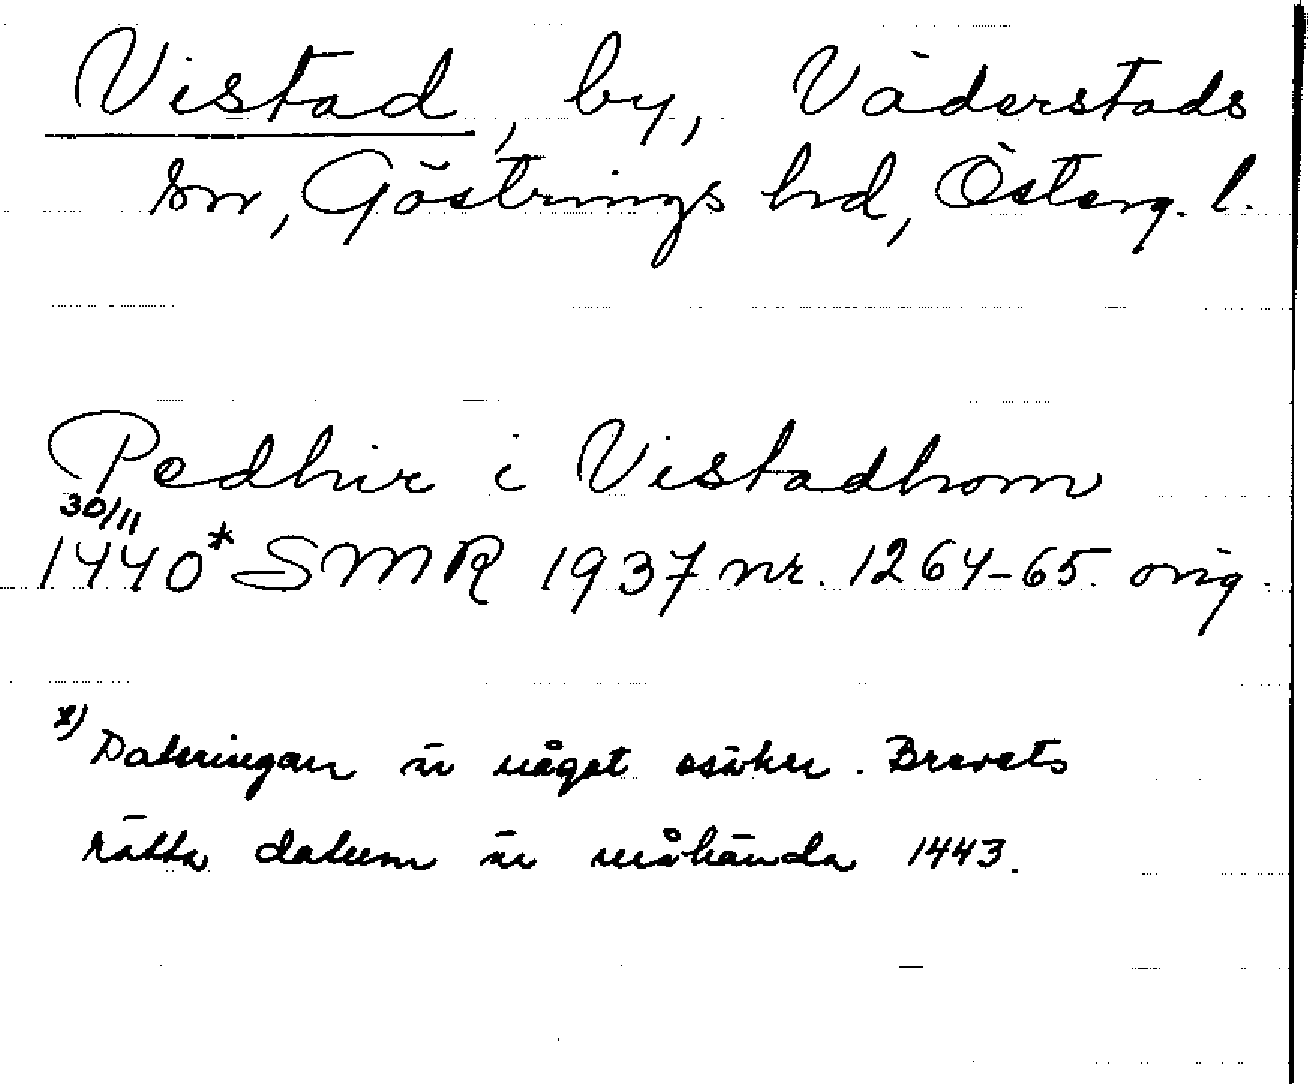 Vistad, by, Väderstads
sn, Göstrings hd, Österg. l.
Pedhir i Vistadhom
30/11
1440* SMR 1937 nr. 1264-65. orig.
x) Dateringen är något osäker. Brevets
rätta datum är måhända 1443.